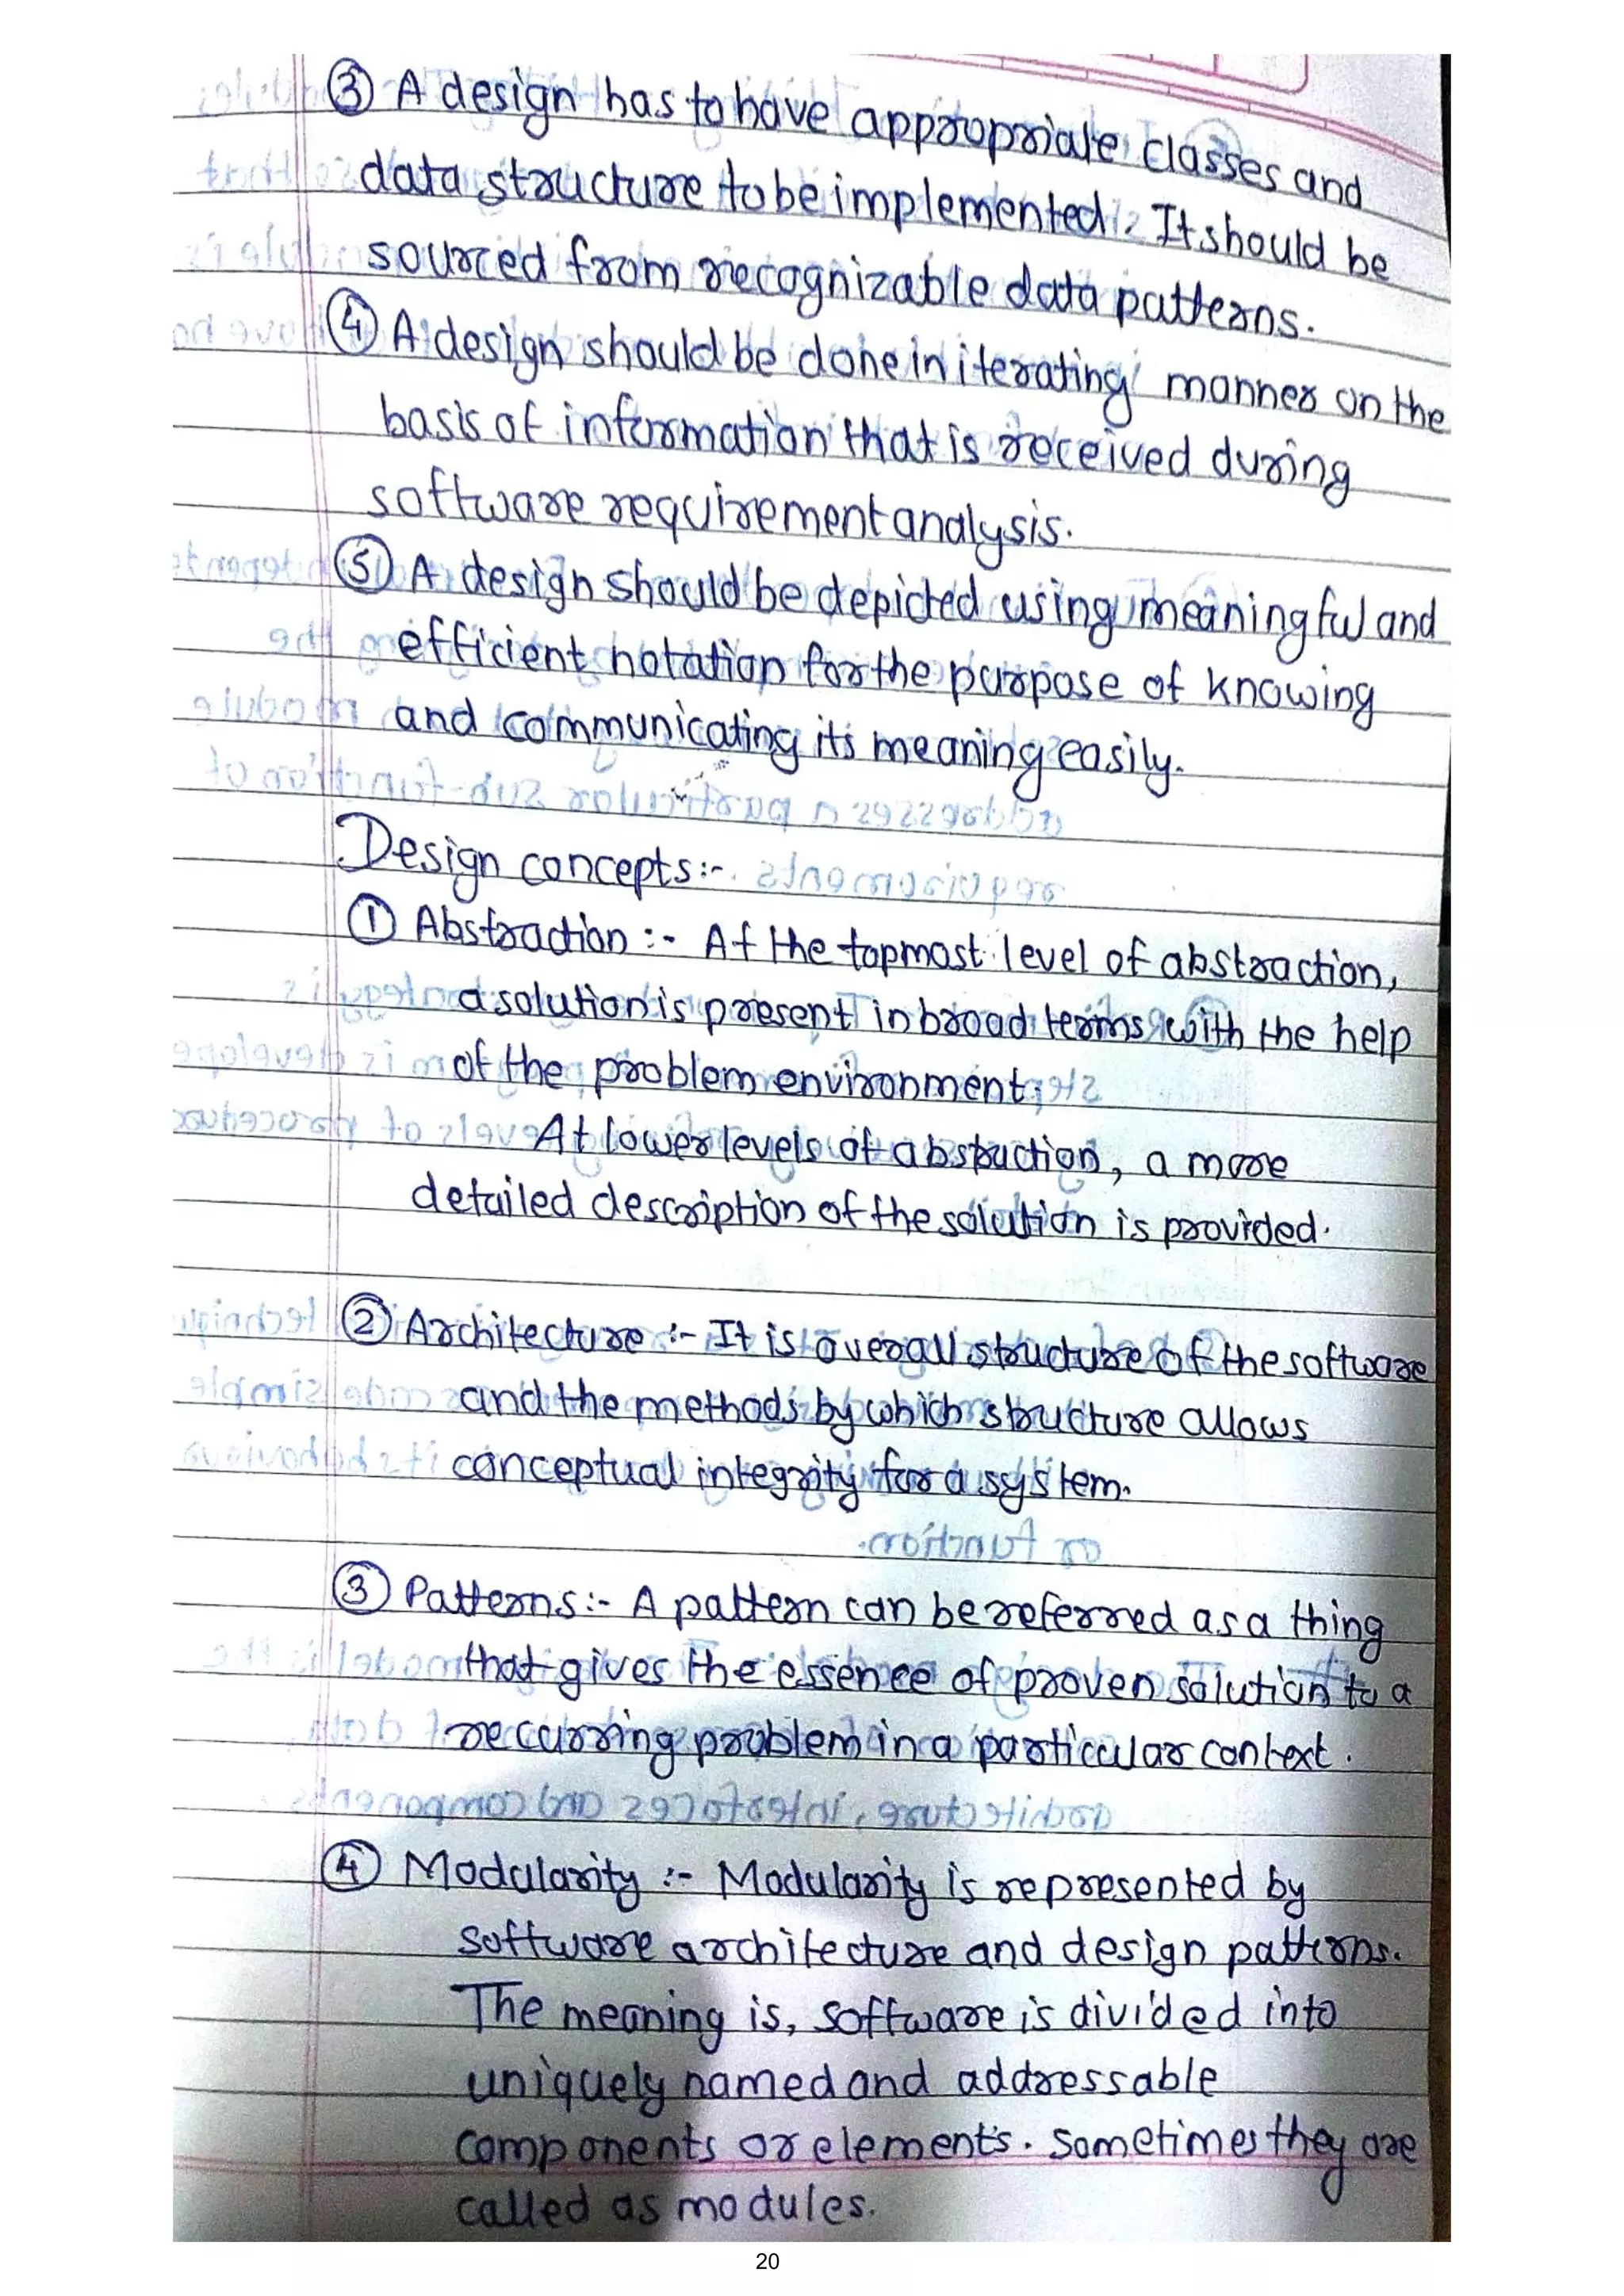 ③ A design has to have appropriate classes and
data structure to be implemented. It should be
sourced from recognizable data patterns.
④ A design should be done in iterating manner on the
basis of information that is received during
software requirement analysis.
⑤ A design should be depicted using meaningful and
efficient notation for the purpose of knowing
and communicating its meaning easily.
Design concepts:-
① Abstraction :- At the topmost level of abstraction,
a solution is present in broad terms with the help
of the problem environment;
At lower levels of abstruction, a more
detailed description of the solution is provided.
② Architecture :- It is overall structure of the software
and the methods by which structure allows
conceptual integrity for a system.
③ Patterns:- A pattern can be referred as a thing
that gives the essence of proven solution to a
recurring problem in a particular context.
④ Modularity :- Modularity is represented by
software architecture and design patterns.
The meaning is, software is divided into
uniquely named and addressable
components or elements. Sometimes they are
called as modules.
20